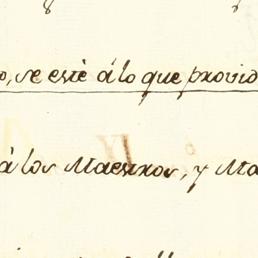 o, se esté á lo que provid
á los Maestros, y Ma